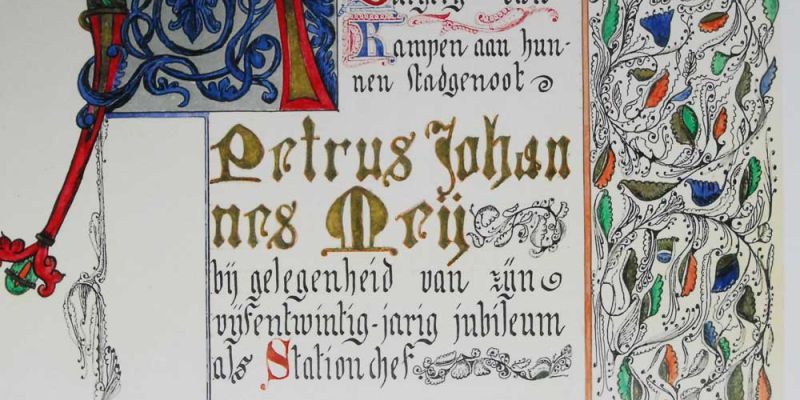 Burgerij van
Kampen aan hun-
nen stadgenoot
Petrus Johan
nes Meij
bij gelegenheid van zijn
vijfentwintig-jarig jubileum
als Stationchef